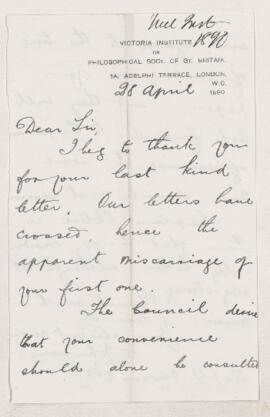 1890
VICTORIA INSTITUTE
OR
PHILOSOPHICAL SOCY. OF GT. BRITAIN.
1A, ADELPHI TERRACE, LONDON,
W.C.
28 April 1890
Dear Sir,
I beg to thank you
for your last kind
letter. Our letters have
crossed, hence the
apparent miscarriage of
your first one.
The Council desire
that your convenience
should alone be consulted